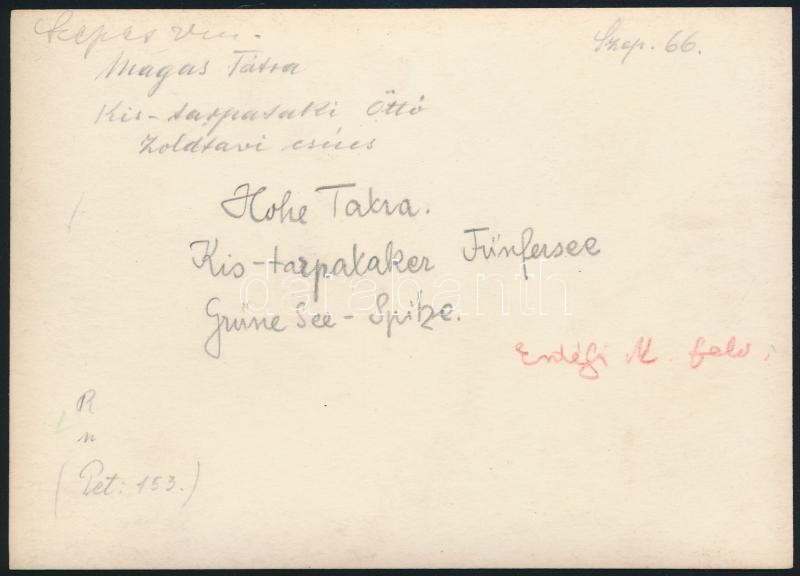 Szepes vm.
Szep. 66.
Magas Tátra
Kis-tarpataki Öttó
Zöldtavi csúcs
Hohe Tatra.
Kis-tarpataker Fünfersee
darabanth
Grüne See - Spitze.
Erdéji M. felv.
R
n
(Pet: 153.)